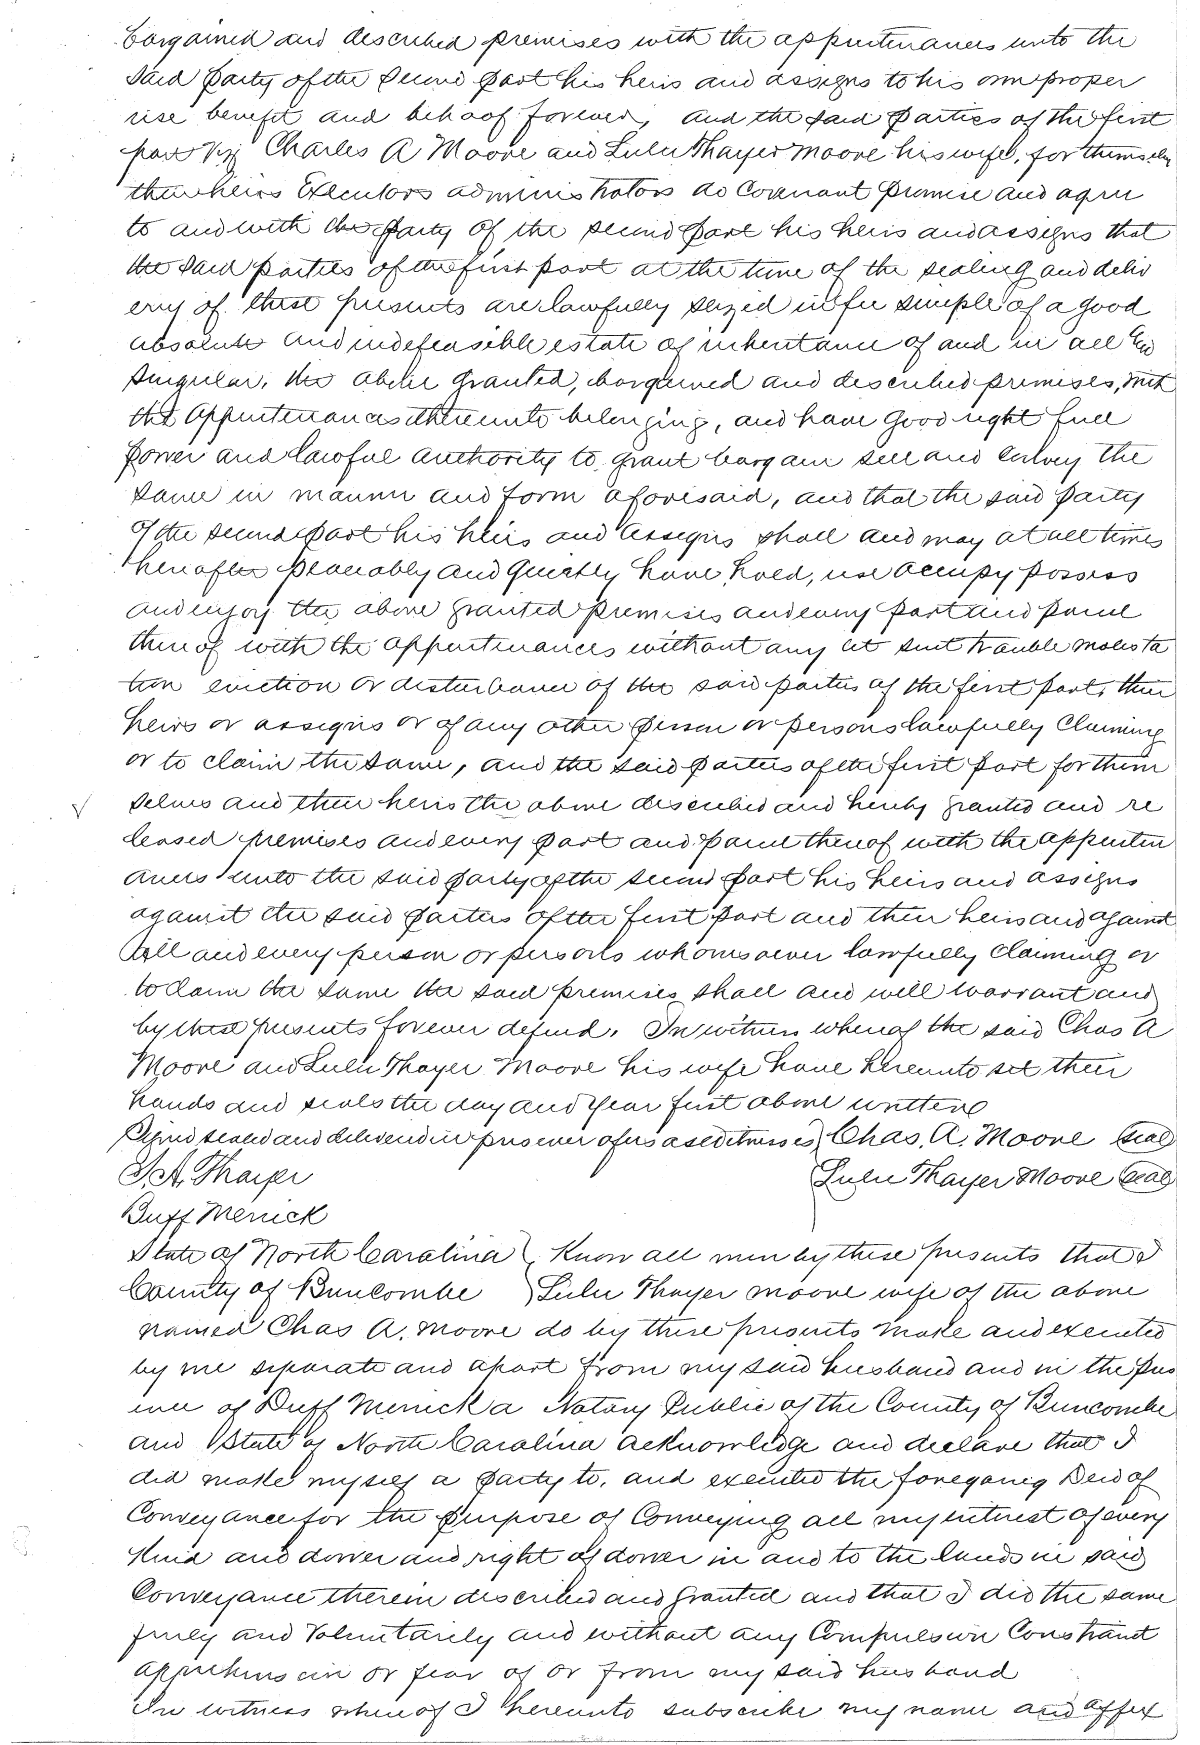 bargained and described premises with the appurtenances unto the
said party of the second part his heirs and assigns to his own proper
use benefit and behoof forever, and the said parties of the first
part viz Charles A Moore and Lulu Thayer Moore his wife, for themselv
their heirs Executors administrators do Covenant Promise and agree
to and with the party of the second part his heirs and assigns that
the said parties of the first part at the time of the sealing and deliv
ery of these presents are lawfully seized in fee simple of a good
absolute and indefeasible estate of inheritance of and in all and
singular, the above granted, bargained and described premises, with
the appurtenances thereunto belonging, and have good right full
power and lawful authority to grant bargain sell and convey the
same in manner and form aforesaid, and that the said party
of the second part his heirs and assigns shall and may at all times
hereafter peaceably and quietly have, hold, use occupy possess
and enjoy the above granted premises and every part and parcel
thereof with the appurtenances without any let suit trouble molesta
tion eviction or disturbance of the said parties of the first part, their
heirs or assigns or of any other person or persons lawfully claiming
or to claim the same, and the said parties of the first part for them
selves and their heirs the above described and hereby granted and re
leased premises and every part and parcel thereof with the appurten
ances unto the said party of the second part his heirs and assigns
against the said parties of the first part and their heirs and against
all and every person or persons whomsoever lawfully claiming or
to claim the same the said premises shall and will warrant and
by these presents forever defend. In witness whereof the said Chas A
Moore and Lulu Thayer Moore his wife have hereunto set their
hands and seals the day and year first above written
Signed sealed and delivered in presence of us as witnesses Chas. A. Moore (seal)
S.A. Thayer Lulu Thayer Moore (seal)
Duff Merrick
State of North Carolina Know all men by these presents that I
County of Buncombe Lulu Thayer Moore wife of the above
named Chas A. Moore do by these presents make and executed
by me separate and apart from my said husband and in the pres
ence of Duff Merrick a Notary Public of the County of Buncombe
and State of North Carolina acknowledge and declare that I
did make myself a party to, and executed the foregoing Deed of
Conveyance for the purpose of Conveying all my interest of every
kind and dower and right of dower in and to the lands in said
Conveyance therein described and granted and that I did the same
freely and voluntarily and without any Compulsion Constraint
apprehension or fear of or from my said husband
In witness whereof I hereunto subscribe my name and affix